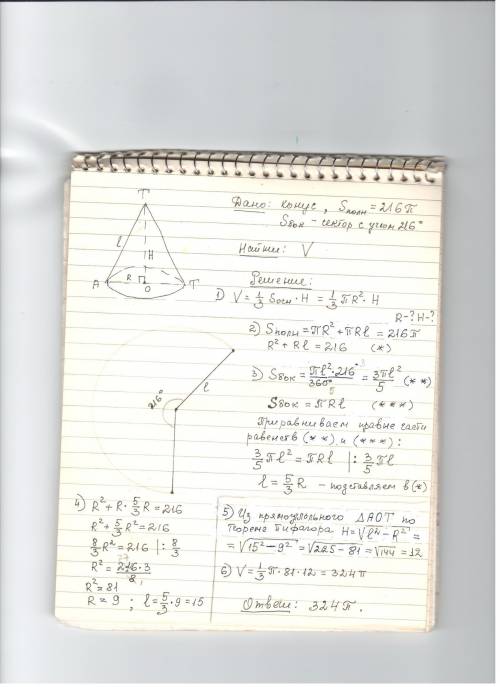 Дано: конус, Sполн = 216π
Sбок - сектор с углом 216°
Найти: V
Решение:
1) V = 1/3 Sосн · H = 1/3 πR² · H
R-? H-?
2) Sполн = πR² + πRl = 216π
R² + Rl = 216 (*)
3) Sбок = πl² · 216° / 360° = 3πl² / 5 (**)
5
Sбок = πRl (***)
Приравниваем правые части
равенств (**) и (***):
3/5 πl² = πRl |: 3/5 πl
l = 5/3 R - подставляем в (*)
T
l
H
R
A
O
T
216°
l
4) R² + R · 5/3 R = 216
R² + 5/3 R² = 216
8/3 R² = 216 |: 8/3
27
R² = 216 · 3 / 8
R² = 81
R = 9 ; l = 5/3 · 9 = 15
5) Из прямоугольного ΔAOT по
теореме Пифагора H = √l² - R² =
= √15² - 9² = √225 - 81 = √144 = 12
6) V = 1/3 π · 81 · 12 = 324π
Ответ: 324π.